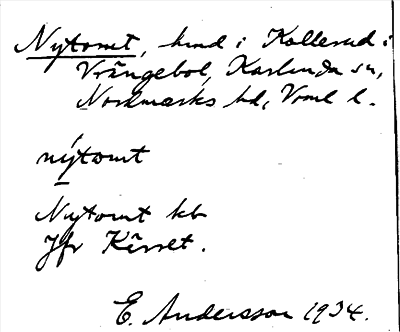 Nytomt, hmd i Kollerud i
Vrångebol, Karlanda sn,
Nordmarks hd, Vrml l.
nýtomt
Nytomt kb
Jfr Kärret.
E. Andersson 1934.